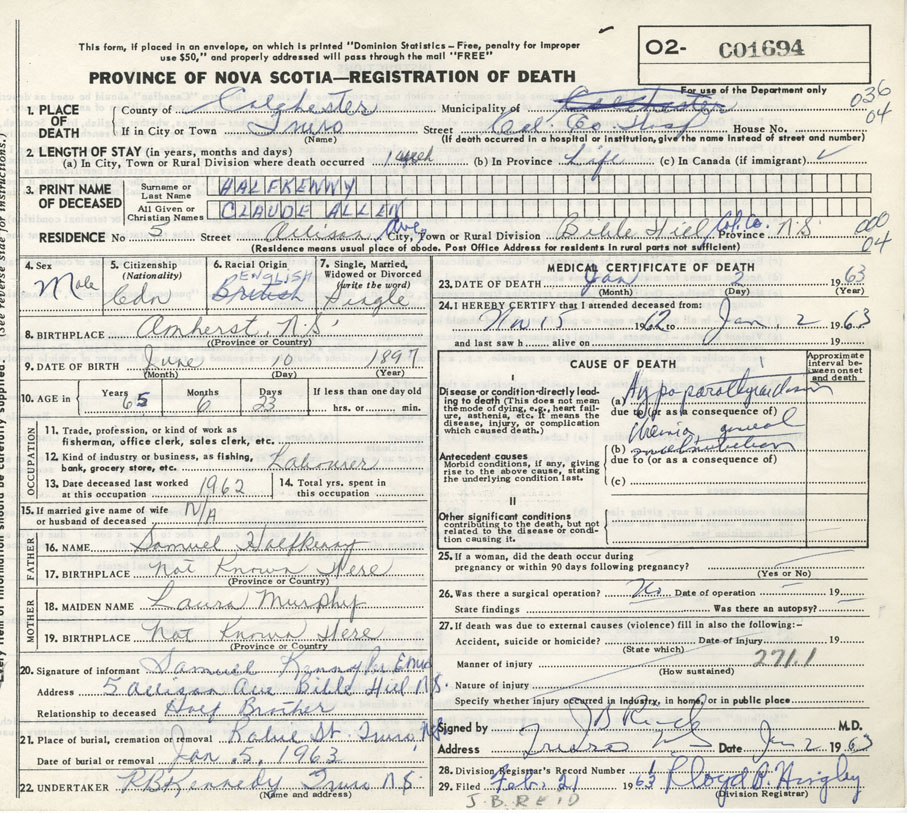 This form, if placed in an envelope, on which is printed "Dominion Statistics - Free, penalty for improper
use $50," and properly addressed will pass through the mail "FREE"
O2- C01694
PROVINCE OF NOVA SCOTIA—REGISTRATION OF DEATH
For use of the Department only
036
04
1. PLACE OF DEATH
County of Colchester Municipality of Colchester
If in City or Town Truro Street Col. Co Hosp House No.
(Name) (If death occurred in a hospital or institution, give the name instead of street and number)
2. LENGTH OF STAY (in years, months and days)
(a) In City, Town or Rural Division where death occurred 1 (b) In Province Life (c) In Canada (if immigrant)
3. PRINT NAME OF DECEASED
Surname or Last Name HALFKENNY
All Given or Christian Names CLAUDE ALLEN
RESIDENCE No 5 Street Allison Ave City, Town or Rural Division Bible Hill Col. Co. Province N.S.
000
04
(Residence means usual place of abode. Post Office Address for residents in rural parts not sufficient)
4. Sex Male
5. Citizenship (Nationality) Cdn
6. Racial Origin ENGLISH British
7. Single, Married, Widowed or Divorced (write the word) Single
8. BIRTHPLACE Amherst, N.S.
(Province or Country)
9. DATE OF BIRTH June 10 1897
(Month) (Day) (Year)
10. AGE in Years 65 Months 6 Days 23 If less than one day old
hrs. or min.
OCCUPATION
11. Trade, profession, or kind of work as
fisherman, office clerk, sales clerk, etc.
12. Kind of industry or business, as fishing,
bank, grocery store, etc. Labourer
13. Date deceased last worked
at this occupation 1962
14. Total yrs. spent in
this occupation
15. If married give name of wife
or husband of deceased N/A
FATHER
16. NAME Samuel Halfkenny
17. BIRTHPLACE Not Known Here
(Province or Country)
MOTHER
18. MAIDEN NAME Laura Murphy
19. BIRTHPLACE Not Known Here
(Province or Country)
20. Signature of informant Samuel Kenny Per
Address 5 Allison Ave Bible Hill N.S.
Relationship to deceased Half Brother
21. Place of burial, cremation or removal St. Truro, N.S.
Date of burial or removal Jan 5, 1963
22. UNDERTAKER RB Kennedy Truro N.S.
(Name and address)
MEDICAL CERTIFICATE OF DEATH
23. DATE OF DEATH Jan 2 1963
(Month) (Day) (Year)
24. I HEREBY CERTIFY that I attended deceased from:
Nov 15 1962 to Jan. 2 1963
and last saw h alive on 19
CAUSE OF DEATH
Approximate interval between onset and death
I
Disease or condition directly leading to death (This does not mean the mode of dying, e.g., heart failure, asthenia, etc. It means the disease, injury, or complication which caused death.)
(a) Hypoparathyroidism
due to (or as a consequence of)
general
Antecedent causes
Morbid conditions, if any, giving rise to the above cause, stating the underlying condition last.
(b) malnutrition
due to (or as a consequence of)
(c)
II
Other significant conditions
contributing to the death, but not related to the disease or condition causing it.
25. If a woman, did the death occur during
pregnancy or within 90 days following pregnancy?
(Yes or No)
26. Was there a surgical operation? No Date of operation 19
State findings Was there an autopsy?
27. If death was due to external causes (violence) fill in also the following:-
Accident, suicide or homicide? Date of injury 19
(State which)
Manner of injury 271.1
(How sustained)
Nature of injury
Specify whether injury occurred in Industry, in home, or in public place
Signed by J B Reid M.D.
Address Truro NS Date Jan 2 1963
28. Division Registrar's Record Number
29. Filed Feb. 21 1963 Lloyd A. Hingley
(Division Registrar)
J.B. REID
(See reverse side for instructions.)